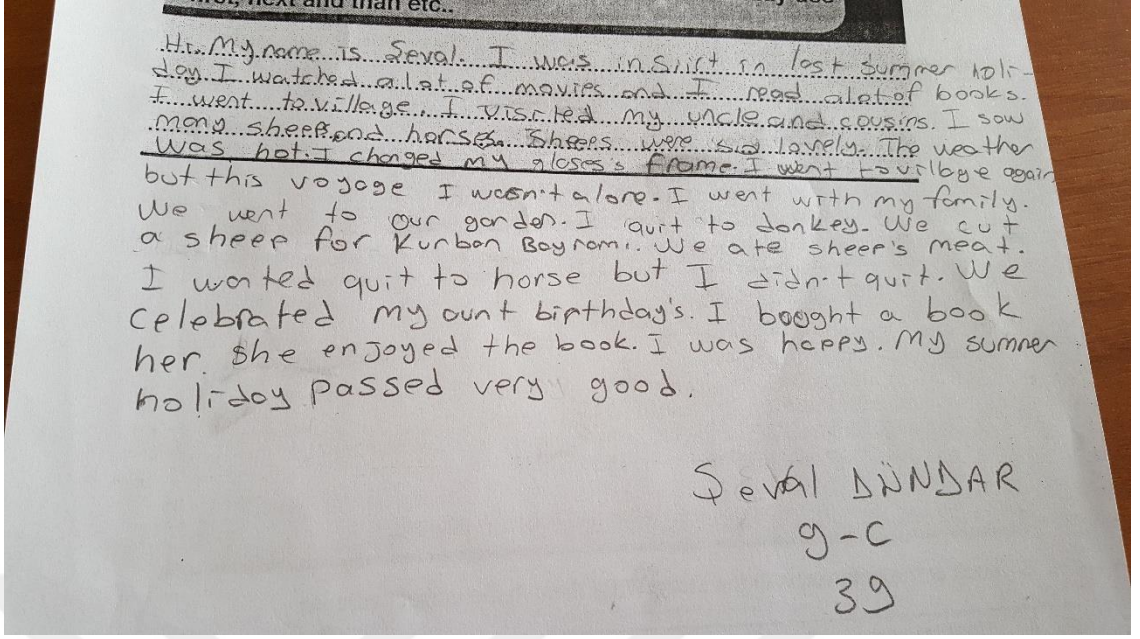 next and than etc..
Hi. My name is Seval. I was in Siirt in last summer holi-
day. I watched a lot of movies and I read alot of books.
I went to village. I visited my uncle and cousins. I saw
many sheeps and horses. Sheeps were so lovely. The weather
was hot. I changed my glases's frame. I went to vilbge again
but this voyage I wasn't alone. I went with my family.
We went to our garden. I quit to donkey. We cut
a sheep for Kurban Bayramı. We ate sheep's meat.
I wanted quit to horse but I didn't quit. We
celebrated my aunt birthday's. I bought a book
her. She enjoyed the book. I was happy. My summer
holiday passed very good.
Seval DÜNDAR
9-C
39